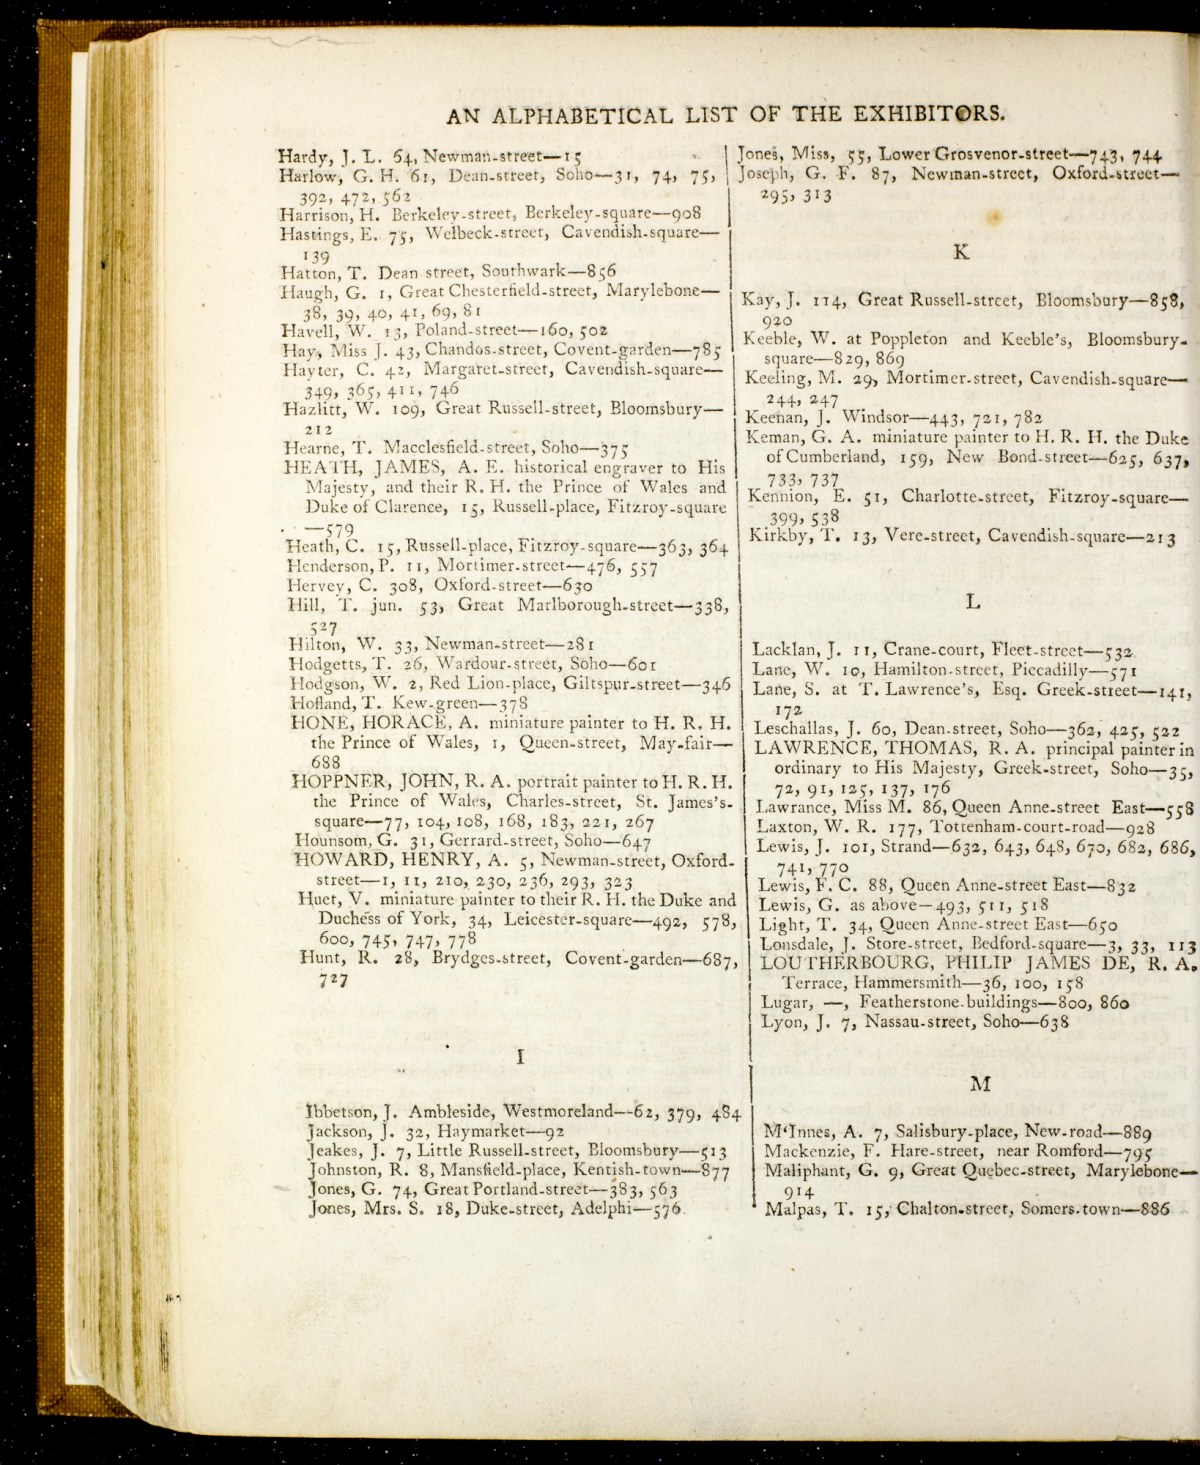 AN ALPHABETICAL LIST OF THE EXHIBITORS.
Hardy, J. L. 64, Newman-street—15
Harlow, G. H. 61, Dean-street, Soho—31, 74, 75,
392, 472, 562
Harrison, H. Berkeley-street, Berkeley-square—908
Hastings, E. 75, Welbeck-street, Cavendish-square—
139
Hatton, T. Dean street, Southwark—856
Haugh, G. 1, Great Chesterfield-street, Marylebone—
38, 39, 40, 41, 69, 81
Havell, W. 13, Poland-street—160, 502
Hay, Miss J. 43, Chandos-street, Covent-garden—785
Hayter, C. 42, Margaret-street, Cavendish-square—
349, 365, 411, 746
Hazlitt, W. 109, Great Russell-street, Bloomsbury—
212
Hearne, T. Macclesfield-street, Soho—375
HEATH, JAMES, A. E. historical engraver to His
Majesty, and their R. H. the Prince of Wales and
Duke of Clarence, 15, Russell-place, Fitzroy-square
—579
Heath, C. 15, Russell-place, Fitzroy-square—363, 364
Henderson, P. 11, Mortimer-street—476, 557
Hervey, C. 308, Oxford-street—630
Hill, T. jun. 53, Great Marlborough-street—338,
527
Hilton, W. 33, Newman-street—281
Hodgetts, T. 26, Wardour-street, Soho—601
Hodgson, W. 2, Red Lion-place, Giltspur-street—346
Hofland, T. Kew-green—378
HONE, HORACE, A. miniature painter to H. R. H.
the Prince of Wales, 1, Queen-street, May-fair—
688
HOPPNER, JOHN, R. A. portrait painter to H. R. H.
the Prince of Wales, Charles-street, St. James's-
square—77, 104, 108, 168, 183, 221, 267
Hounsom, G. 31, Gerrard-street, Soho—647
HOWARD, HENRY, A. 5, Newman-street, Oxford-
street—1, 11, 210, 230, 236, 293, 323
Huet, V. miniature painter to their R. H. the Duke and
Duchess of York, 34, Leicester-square—492, 578,
600, 745, 747, 778
Hunt, R. 28, Brydges-street, Covent-garden—687,
727
I
Ibbetson, J. Ambleside, Westmoreland—62, 379, 484
Jackson, J. 32, Haymarket—92
Jeakes, J. 7, Little Russell-street, Bloomsbury—513
Johnston, R. 8, Mansfield-place, Kentish-town—877
Jones, G. 74, Great Portland-street—383, 563
Jones, Mrs. S. 18, Duke-street, Adelphi—576
Jones, Miss, 55, Lower Grosvenor-street—743, 744
Joseph, G. F. 87, Newman-street, Oxford-street—
295, 313
K
Kay, J. 114, Great Russell-street, Bloomsbury—858,
920
Keeble, W. at Poppleton and Keeble's, Bloomsbury-
square—829, 869
Keeling, M. 29, Mortimer-street, Cavendish-square—
244, 247
Keenan, J. Windsor—443, 721, 782
Keman, G. A. miniature painter to H. R. H. the Duke
of Cumberland, 159, New Bond-street—625, 637,
733, 737
Kennion, E. 51, Charlotte-street, Fitzroy-square—
399, 538
Kirkby, T. 13, Vere-street, Cavendish-square—213
L
Lacklan, J. 11, Crane-court, Fleet-street—532
Lane, W. 10, Hamilton-street, Piccadilly—571
Lane, S. at T. Lawrence's, Esq. Greek-street—141,
172
Leschallas, J. 60, Dean-street, Soho—362, 425, 522
LAWRENCE, THOMAS, R. A. principal painter in
ordinary to His Majesty, Greek-street, Soho—35,
72, 91, 125, 137, 176
Lawrance, Miss M. 86, Queen Anne-street East—558
Laxton, W. R. 177, Tottenham-court-road—928
Lewis, J. 101, Strand—632, 643, 648, 670, 682, 686,
741, 770
Lewis, F. C. 88, Queen Anne-street East—832
Lewis, G. as above—493, 511, 518
Light, T. 34, Queen Anne-street East—650
Lonsdale, J. Store-street, Bedford-square—3, 33, 113
LOUTHERBOURG, PHILIP JAMES DE, R. A.
Terrace, Hammersmith—36, 100, 158
Lugar, —, Featherstone-buildings—800, 860
Lyon, J. 7, Nassau-street, Soho—638
M
M'Innes, A. 7, Salisbury-place, New-road—889
Mackenzie, F. Hare-street, near Romford—795
Maliphant, G. 9, Great Quebec-street, Marylebone—
914
Malpas, T. 15, Chalton-street, Somers-town—886